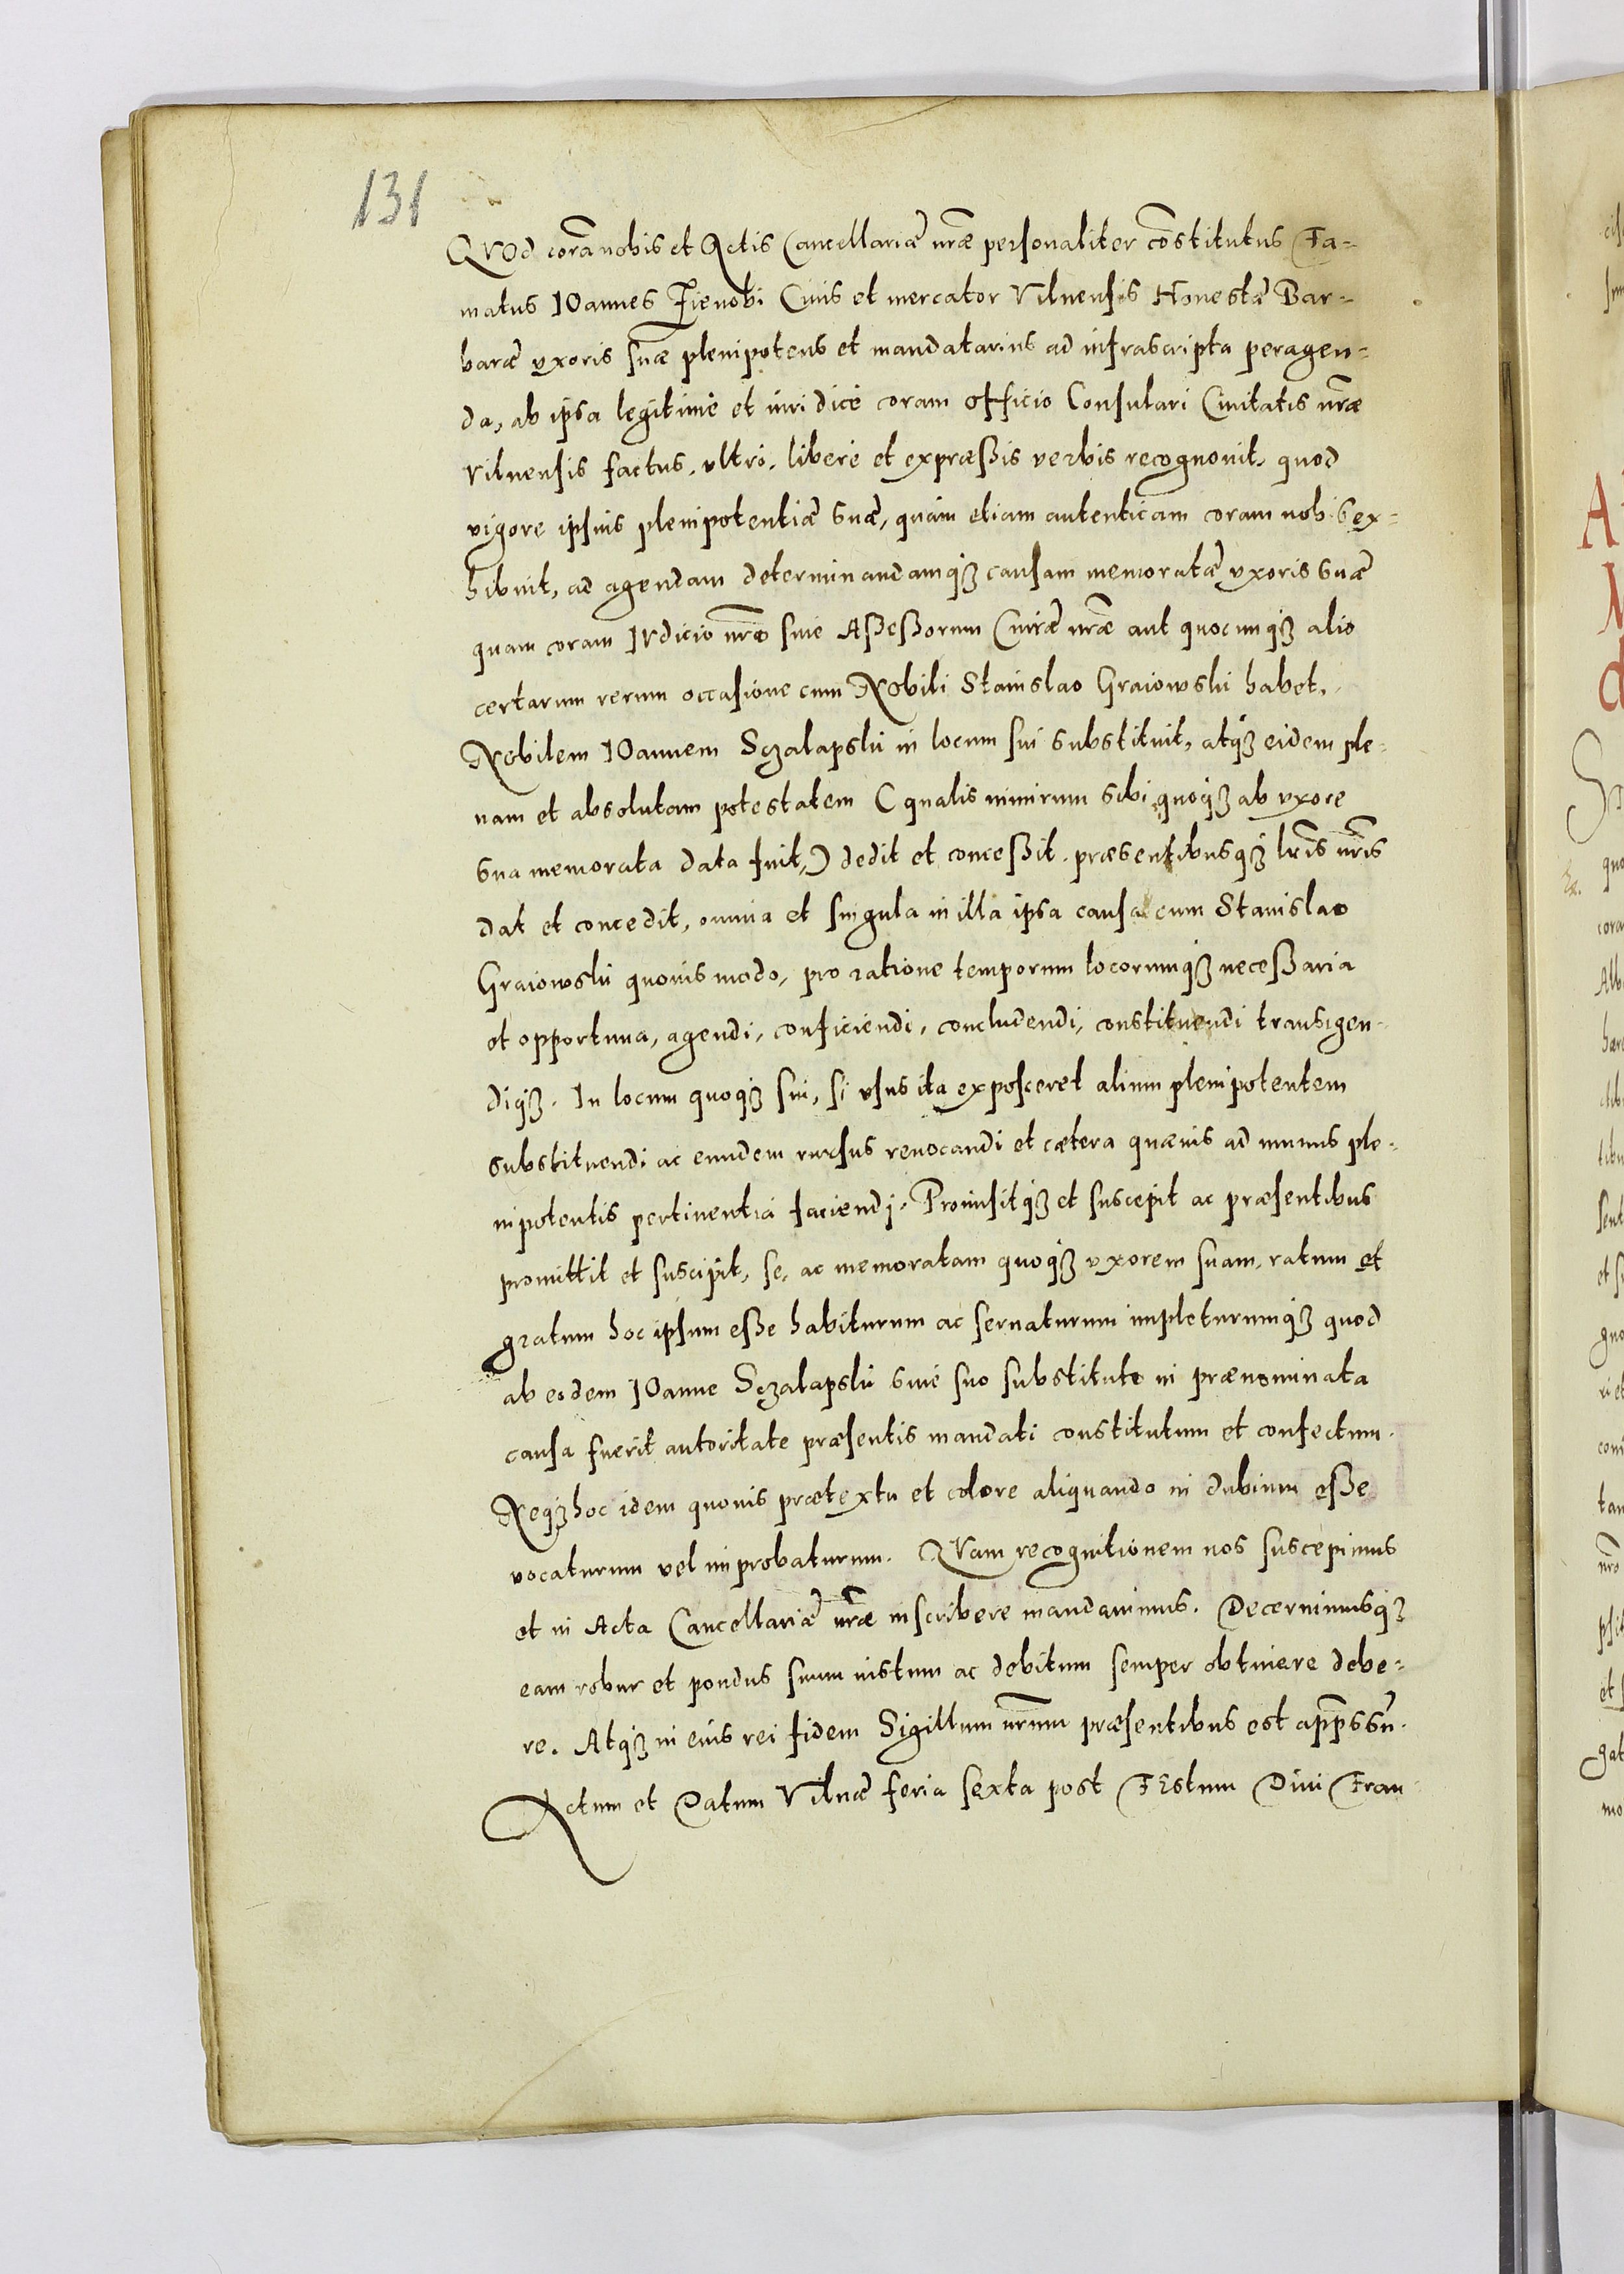 131
QVOd corã nobis et Actis Cancellariæ nr̃æ personaliter cõstitutus Fa-
matus IOannes Zienobi Ciuis et mercator Vilnensis Honestæ Bar-
baræ vxoris suæ plenipotens et mandatarius ad infrascripta peragen-
da, ab ipsa legitimè et iuridicè coram officio Consulari Ciuitatis nr̃æ
Vilnensis factus, vltrò, liberè et expræßis verbis recognouit, quod
vigore ipsius plenipotentiæ suæ, quàm etiam autenticam coram nobis ex-
hibuit, ad agendam determinandamq́ꝫ causam memoratæ vxoris suæ
quam coram IVdicio nr̃o siue Aßeßorum Curiæ nr̃æ aut quocunq́ꝫ alio
certarum rerum occasione cum Nobili Stanislao Graiowski habet,
Nobilem IOannem Szalapski in locum sui substituit, atq́ꝫ eidem ple-
nam et absolutam potestatem (qualis nimirum sibi quoq́ꝫ ab vxore
sua memorata data fuit,) dedit et conceßit. præsentibusq́ꝫ lr̃is nr̃is
dat et concedit, omnia et singula in illa ipsa causa cum Stanislao
Graiowski quouis modo, pro ratione temporum locorumq́ꝫ neceßaria
et opportuna, agendi, conficiendi, concludendi, constituendi transigen-
diq́ꝫ. In locum quoq́ꝫ sui, si vsus ita exposceret alium plenipotentem
substituendi ac eundem rursus reuocandi et cætera quæuis ad munus ple-
nipotentis pertinentia faciendj. Promisitq́ꝫ et suscepit ac præsentibus
promittit et suscipit, se, ac memoratam quoq́ꝫ vxorem suam, ratum et
gratum hoc ipsum eße habiturum ac seruaturum impleturumq́ꝫ quod
ab eodem IOanne Szalapski siuè suo substituto in prænominata
causa fuerit autoritate præsentis mandati constitutum et confectum.
Neqꝫ hoc idem quouis prætextu et colore aliquando in dubium eße
vocaturum vel improbaturum. QVam recognitionem nos suscepimus
et in Acta Cancellariæ nr̃æ inscribere mandauimus. Decernimusq́ꝫ
eam robur et pondus suum iustum ac debitum semper obtinere debe-
re. Atq́ꝫ in eius rei fidem Sigillum nr̃um præsentibus est app̃ssũ.
Actum et Datum Vilnæ feria sexta post FEstum Diui Fran-